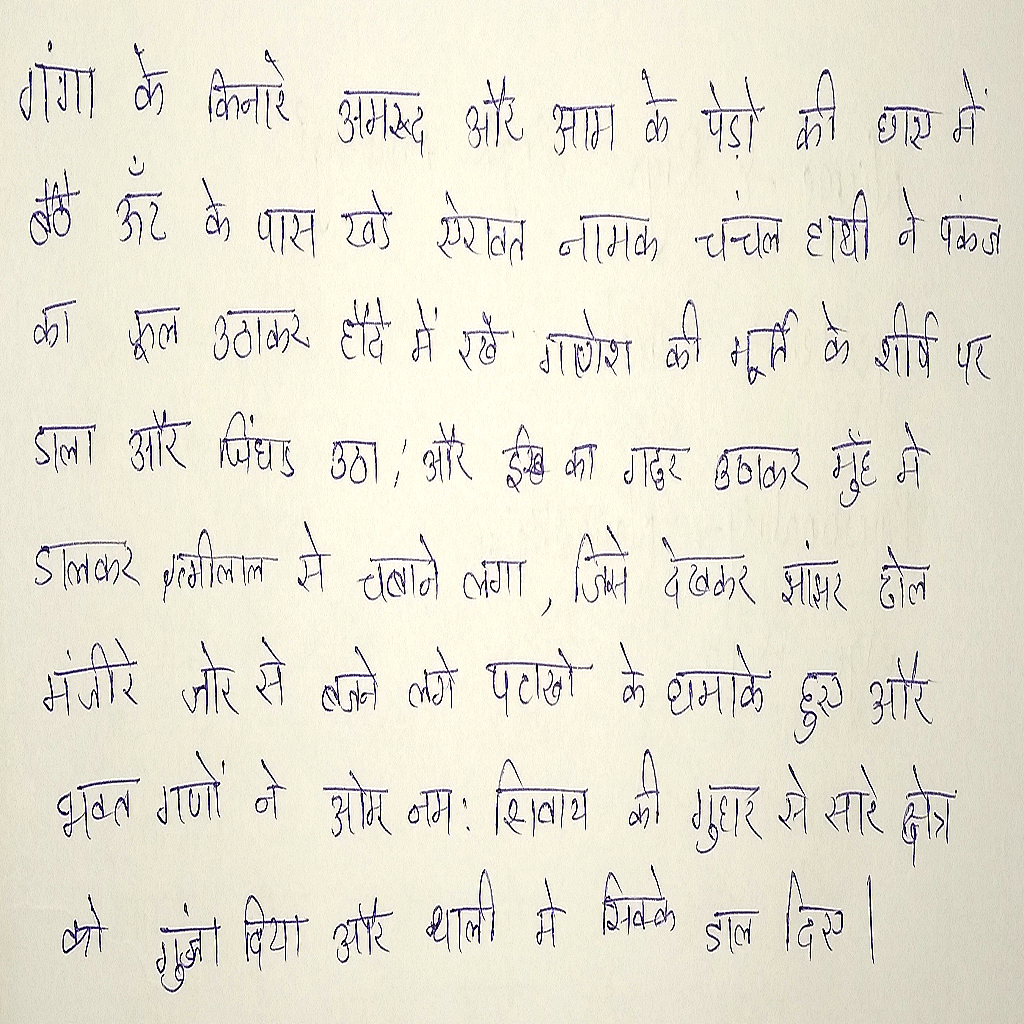 गंगा के किनारे अमरूद और आम के पेड़ो की छाए में
बैठे ऊँट के पास खडे ऐरावत नामक चंचल हाथी ने पंकज
का फूल उठाकर हौदे में रखे गणेश की मूर्ति के शीर्ष पर
डाला और चिंघाड उठा, और ईख का गट्ठर उठाकर मुँह मे
डालकर इत्मीलाल से चबाने लगा, जिसे देखकर झांझर ढोल
मंजीरे जोर से बजने लगे पटाखो के धमाके हुए और
भक्त गणों ने ओम नम: शिवाय की गुहार से सारे क्षेत्र
को गुंजा दिया और थाली मे सिक्के डाल दिए।